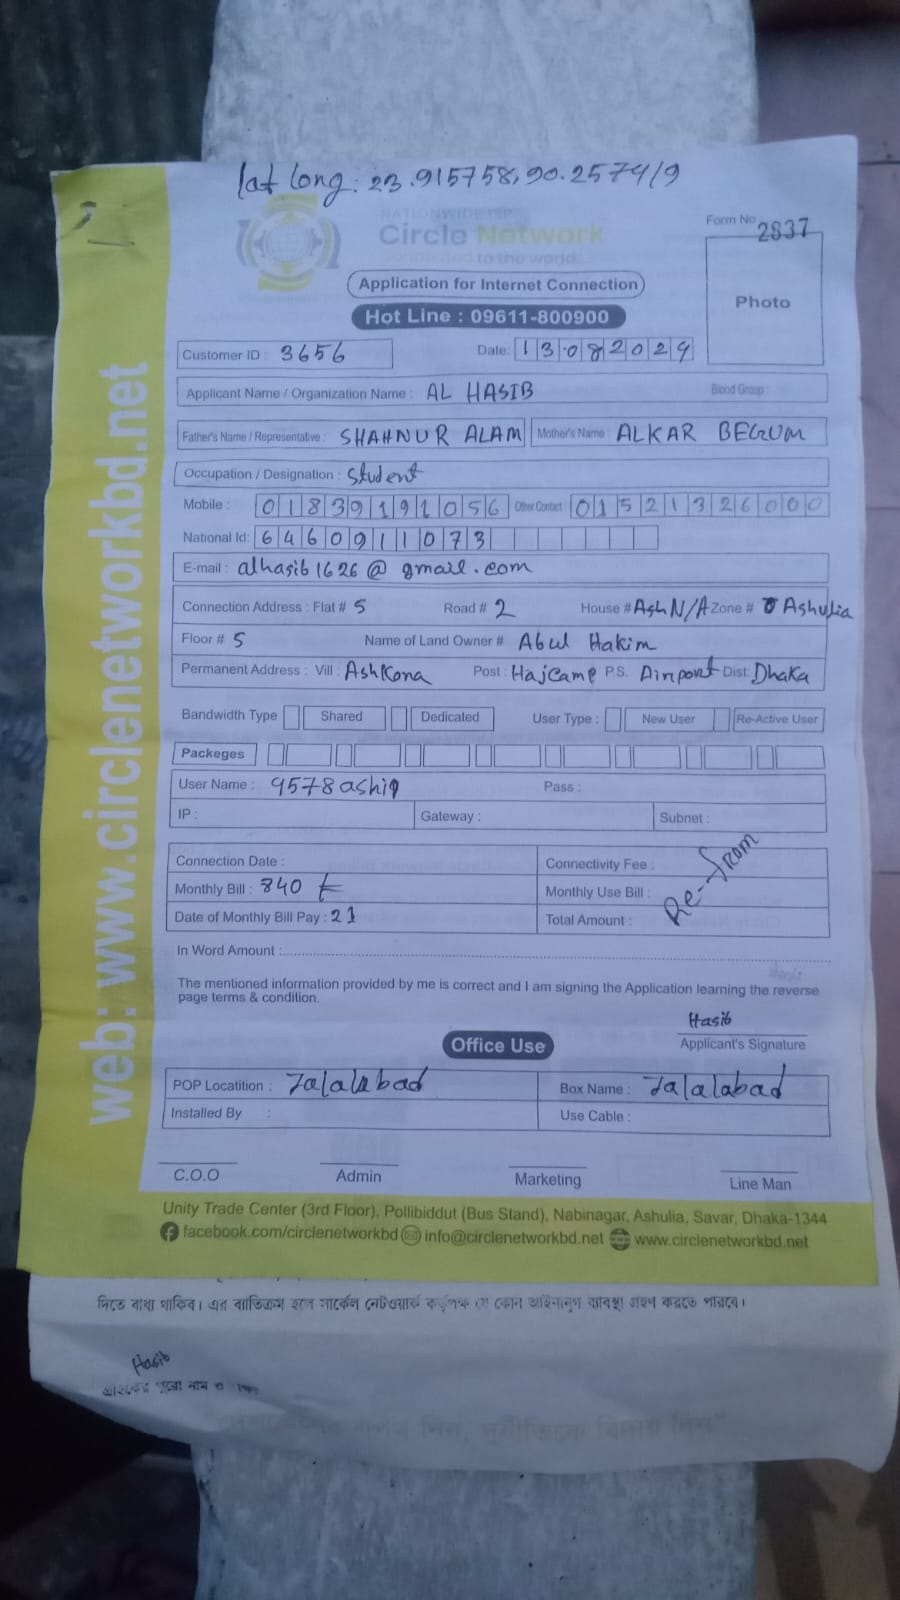 lat long: 23.915758,90.257419
NATIONWIDE ISP
Circle Network
Connected to the world
Form No. 2837
Photo
Application for Internet Connection
Hot Line : 09611-800900
Customer ID : 3656
Date: 13.082024
Applicant Name / Organization Name : AL HASIB Blood Group :
Father's Name / Representative : SHAHNUR ALAM Mother's Name ALKAR BEGUM
Occupation / Designation : Student
Mobile : 01839191056 Other Contact : 01521326000
National Id: 6460911073
E-mail : alhasib1626@gmail.com
Connection Address : Flat # 5 Road # 2 House # Ash N/A Zone # Ashulia
Floor # 5 Name of Land Owner # Abul Hakim
Permanent Address : Vill : AshKona Post : Hajcamp P.S. Airport Dist: Dhaka
Bandwidth Type Shared Dedicated User Type : New User Re-Active User
Packeges
User Name : 9578ashiq Pass :
IP : Gateway : Subnet :
Connection Date : Connectivity Fee :
Monthly Bill : 840 Monthly Use Bill :
Date of Monthly Bill Pay : 21 Total Amount :
Re-from
In Word Amount :
The mentioned information provided by me is correct and I am signing the Application learning the reverse
page terms & condition.
Hasib
Applicant's Signature
Office Use
POP Locatition : Jalalabad Box Name : Jalalabad
Installed By : Use Cable :
C.O.O Admin Marketing Line Man
Unity Trade Center (3rd Floor), Pollibiddut (Bus Stand), Nabinagar, Ashulia, Savar, Dhaka-1344
facebook.com/circlenetworkbd info@circlenetworkbd.net www.circlenetworkbd.net
web: www.circlenetworkbd.net
দিতে বাধ্য থাকিব। এর ব্যতিক্রম হলে সার্কেল নেটওয়ার্ক কর্তৃপক্ষ যে কোন আইনানুগ ব্যবস্থা গ্রহণ করতে পারবে।
Hasib
গ্রাহকের পুরো নাম ও